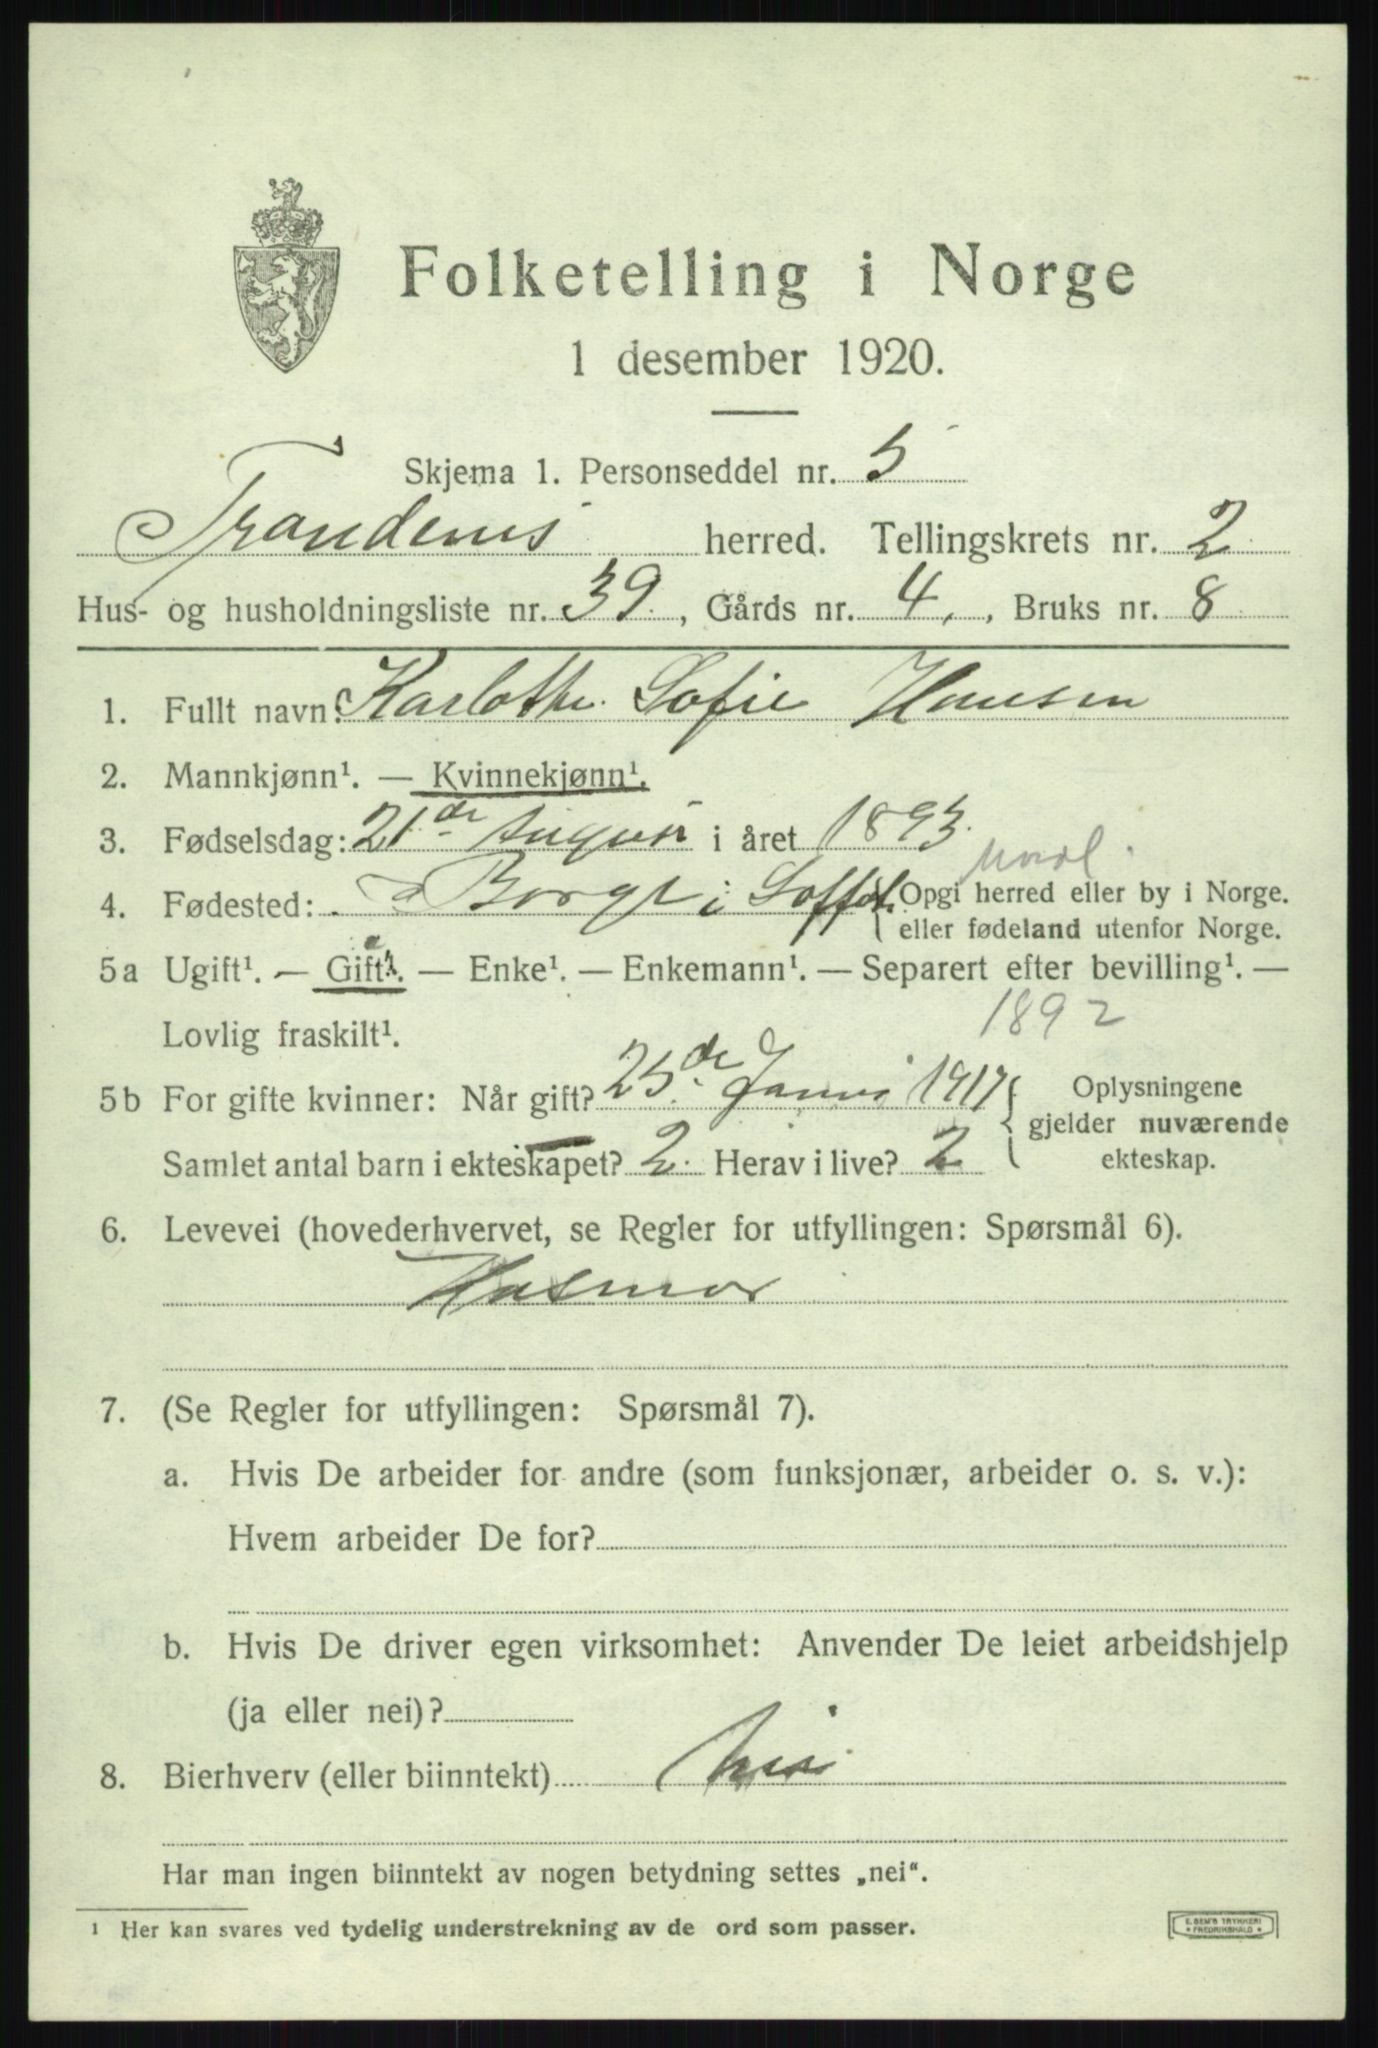 Folketelling i Norge
1 desember 1920.
Skjema 1. Personseddel nr. 5
Trondenes herred. Tellingskrets nr. 2
Hus- og husholdningsliste nr. 39., Gårds nr. 4., Bruks nr. 8
1. Fullt navn: Karlotte Sofie Hansen
2. Mannkjønn¹. — Kvinnekjønn¹.
3. Fødselsdag: 21de August i året 1893.
Nordl.
4. Fødested: Borge i Loffot. Opgi herred eller by i Norge.
eller fødeland utenfor Norge.
5a Ugift¹. — Gift¹. — Enke¹. — Enkemann¹. — Separert efter bevilling¹. —
Lovlig fraskilt¹.
1892
5b For gifte kvinner: Når gift? 25de 1917 Oplysningene
gjelder nuværende
Samlet antal barn i ekteskapet? 2. Herav i live? 2 ekteskap.
6. Levevei (hovederhvervet, se Regler for utfyllingen: Spørsmål 6).
Husmor
7. (Se Regler for utfyllingen: Spørsmål 7).
a. Hvis De arbeider for andre (som funksjonær, arbeider o. s. v.):
Hvem arbeider De for?
b. Hvis De driver egen virksomhet: Anvender De leiet arbeidshjelp
(ja eller nei)?
8. Bierhverv (eller biinntekt) nei
Har man ingen biinntekt av nogen betydning settes „nei“.
¹ Her kan svares ved tydelig understrekning av de ord som passer.
E. SEM'S TRYKKERI
FREDRIKSHALD